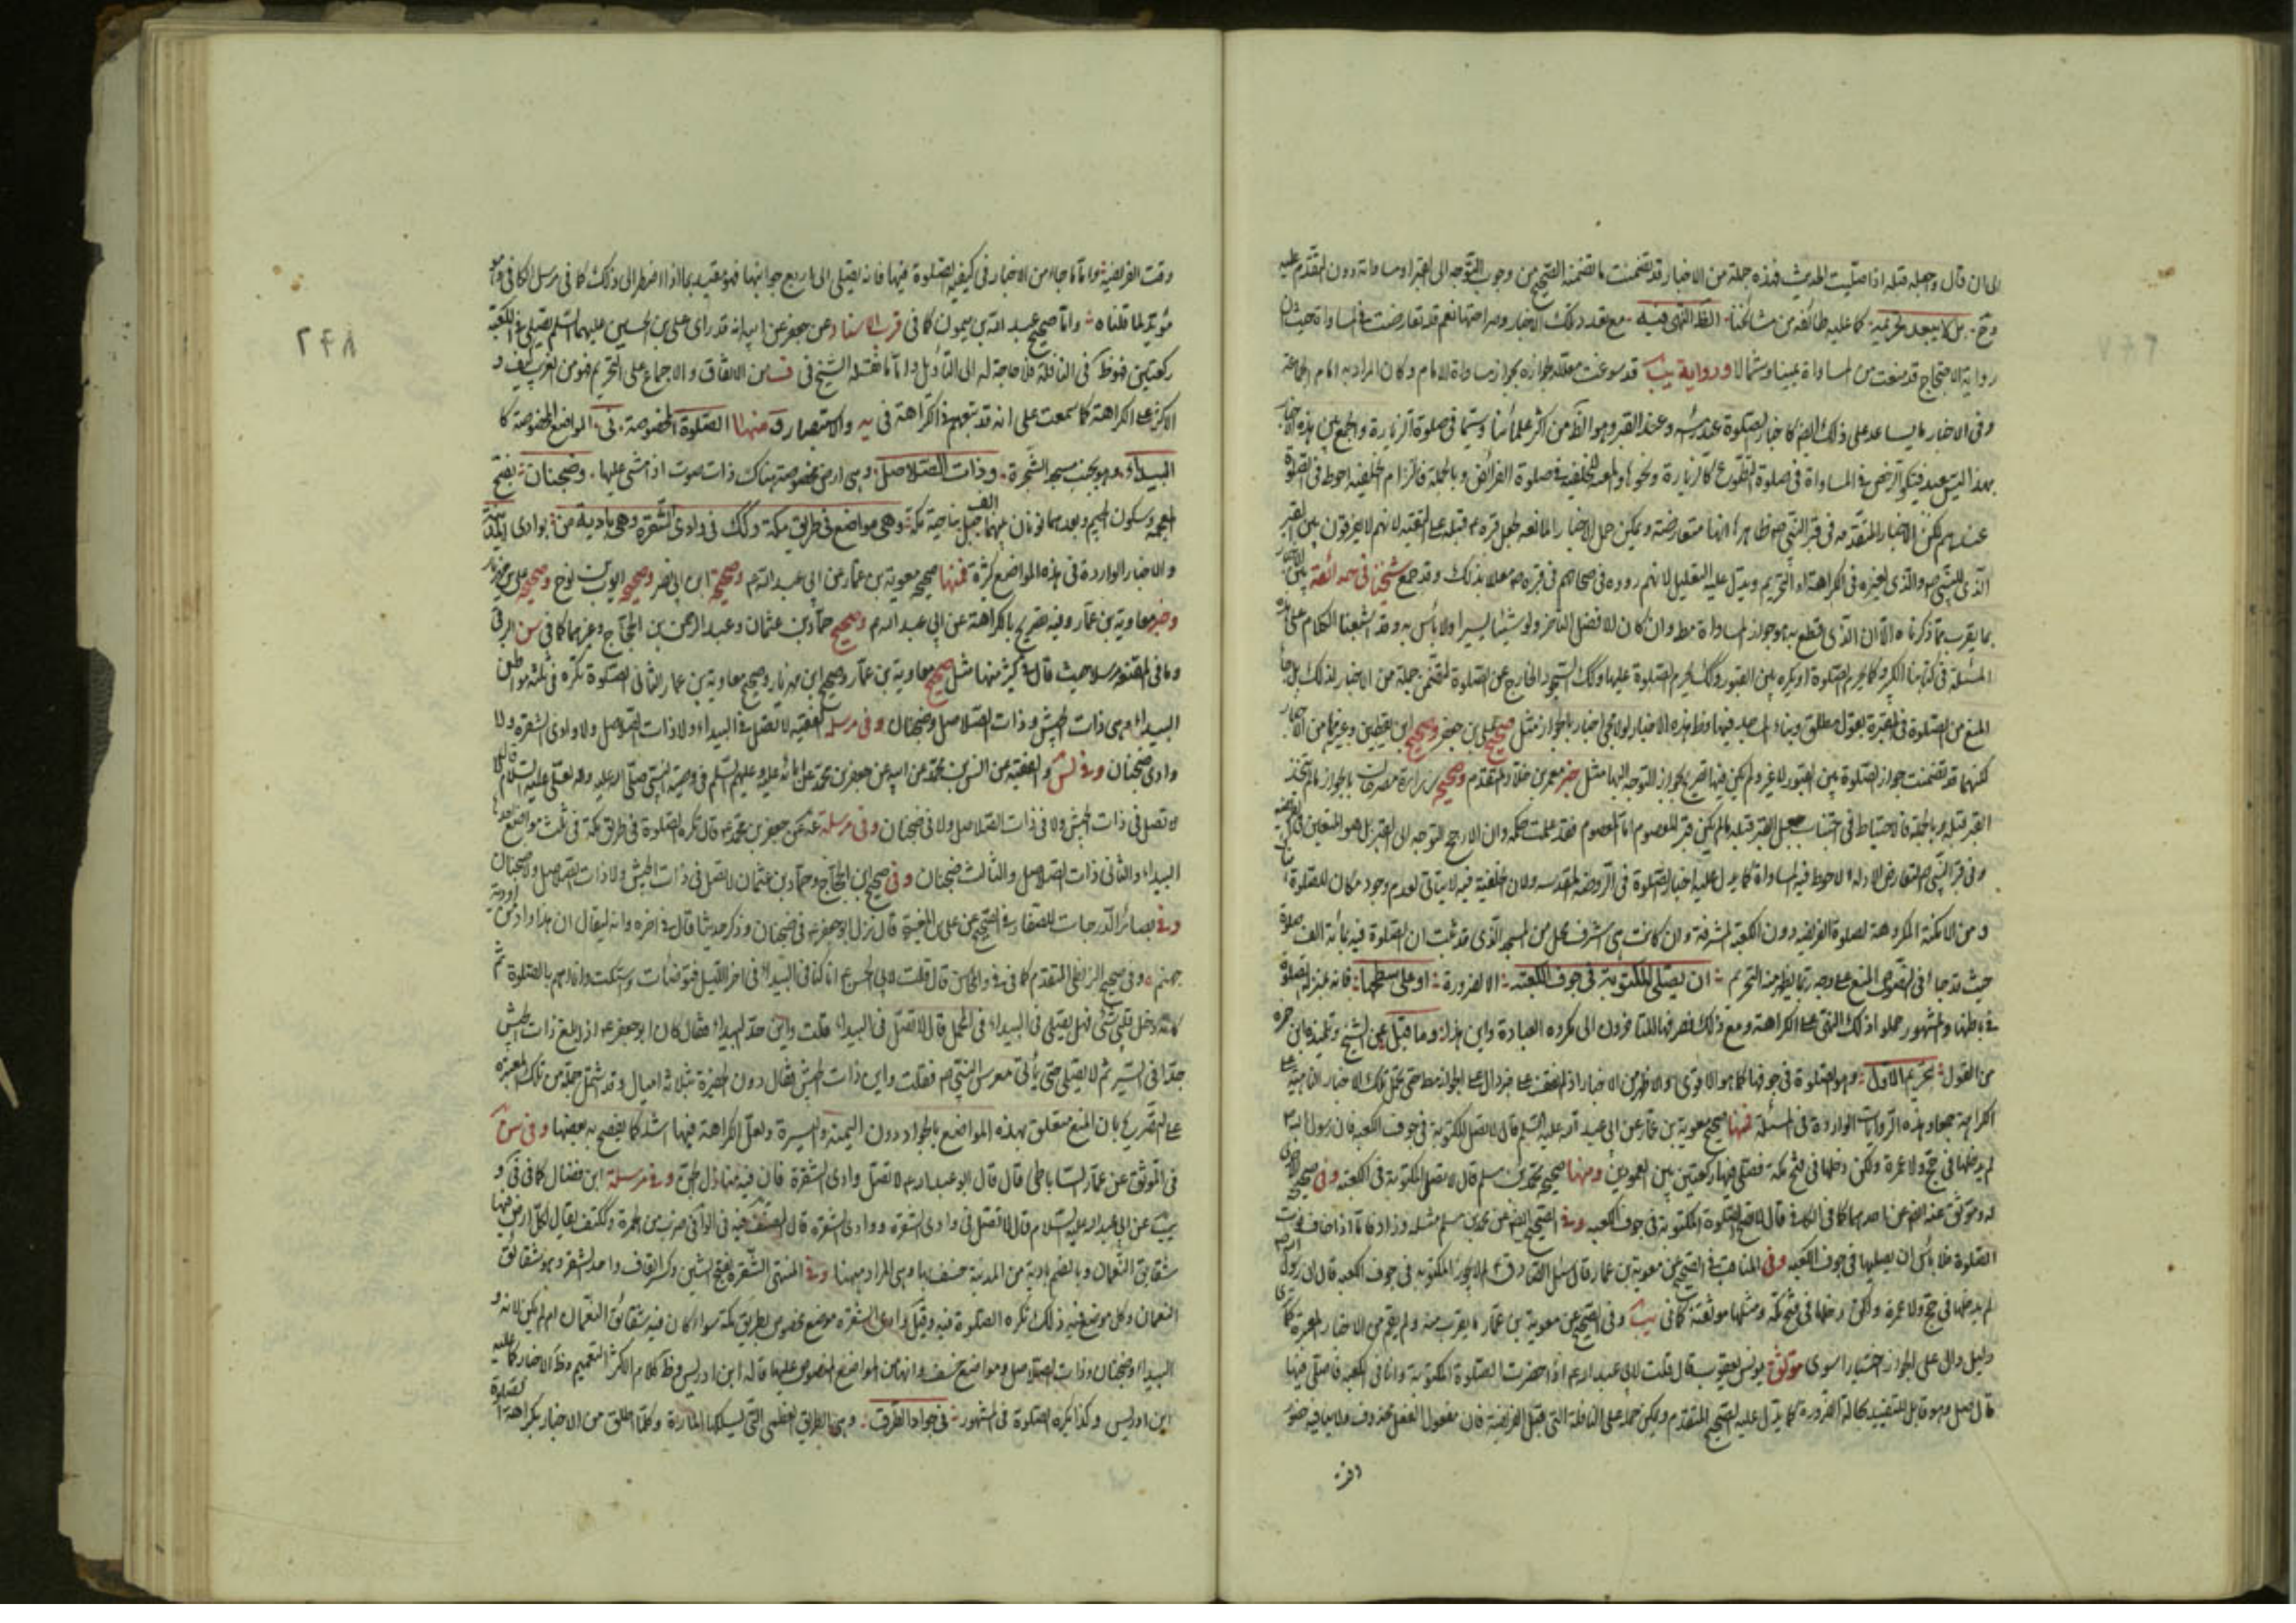 الى ان قال وجعله قبلة اذا صليت الحديث فهذه جملة من الاخبار قد تضمنت ما تضمنه الصحيح من وجوب التوجه الى القبر او مساواته دون التقدم عليه
وح بل لا يبعد تحريمه كما عليه طائفة من مشائخنا لظ النهى فيه مع تعدد تلك الاخبار وصراحتها نعم قد تعارضت فى المساواة حيث ان
رواية الاحتجاج قد منعت من المساواة يمينا وشمالا ورواية يب قد سوغت معللة لجوازه بجواز مساواة الامام وكان المراد به امام الجماعة
وفى الاخبار ما يساعد على ذلك ايض كاخبار الصلوة عند راسه وعند القبر وهو الظ من اكثر علمائنا وسيما فى صلوة الزيارة والجمع بين هذه الاخبار
بهذا ليس ببعيد فى صلوة التطوع كالزيارة ونحوها والمنع فى صلوة الفرائض وبالجملة فالتزام الخلفية احوط فى الصلوة
عندهم لكن الاخبار المتقدمة فى قبر النبى ص ظاهرها انها متعارضة ويمكن حمل الاخبار المانعة لجعل قبره ص قبلة على التقية لانهم لا يفرقون بين القبر
الذى للنبى ص والذى لغيره فى الكراهة او التحريم ويدل عليه التعليل لانهم رووه فى صحاحهم فى قبره ص معللا بذلك وقد جمع شيخنا فى حدائقه بين الاخبار
بما يقرب مما ذكرناه الا ان الذى قطع به هو جواز المساواة مط وان كان الافضل التاخر ولو شيئا يسيرا ولا باس به وقد اشبعنا الكلام على هذه
المسئلة فى كتابنا الكبير وكما تحرم الصلوة او يكره بين القبور وكك يحرم الصلوة عليها وكك السجود الخارج عن الصلوة لتضمن جملة من الاخبار لذلك بل
المنع من الصلوة فى المقبرة بقول مطلق وبناء المساجد فيها وظ هذه الاخبار لولا مجئ اخبار بالجواز مثل صحيح على بن جعفر وصحيح ابن يقطين وغيرهما من الاخبار
لكنهما قد تضمنت جواز الصلوة بين القبور لا غير ولم يكن فيها تصريح بجواز التوجه اليها مثل خبر معمر بن خلاد المتقدم وصحيح زرارة مصرحات بالجواز ما لم يتخذ
القبر قبلة وبالجملة فالاحتياط فى اجتناب جعل القبر قبلة ما لم يكن قبر المعصوم اما المعصوم فقد علمت حكمه وان الارجح التوجه الى القبر بل هو المتعين
وفى قبر النبى ص لتعارض الادلة الاحوط فيه المساواة كما يدل عليه اخبار الصلوة فى الروضة المقدسة ولان الخلفية فيه لا يتاتى لعدم وجود مكان للصلوة
ومن الامكنة المكروهة لصلوة الفريضة دون الكعبة المشرفة وان كانت هى اشرف محل من المسجد الذى قد ثبت ان الصلوة فيه بمائة الف صلوة
حيث قد جاء فى النصوص المنع على وجه ربما يظهر منه التحريم ان يصلى المكتوبة فى جوف الكعبة الا لضرورة او على سطحها فانه بمنزلة الصلوة
فى باطنها والمشهور حملوا ذلك النهى على الكراهة ومع ذلك فصرفها للتاخرون الى مكروه العبادة واين هذا وما قبل عن الشيخ وتلميذه ابن حمزه
من القول بتحريم الاول وهو الصلوة فى جوفها كما هو الاقوى والاظهر من الاخبار اذ لم نقف على خبر دال على الجواز مط حتى يحمل تلك الاخبار الناهية على
الكراهة جمعا وهذه الروايات الواردة فى المسئلة فمنها صحيح معوية بن عمار عن ابى عبد الله عليه السلم قال لا تصل المكتوبة فى جوف الكعبة فان رسول الله ص
لم يدخلها فى حج ولا عمرة ولكن دخلها فى فتح مكة فصلى فيها ركعتين بين العمودين ومنها صحيح محمد بن مسلم قال لا تصل المكتوبة فى الكعبة وفى صحيح اخرى
له وموثق عنه ايض عن احدهما كما فى الكا فى قال لا تصلح الصلوة المكتوبة فى جوف الكعبة وفى الصحيح ايض عن محمد بن مسلم مثله وزاد فاما اذا خاف فوت
الصلوة فلا باس ان يصليها فى جوف الكعبة وفى المقنعة فى الصحيح عن معوية بن عمار قال سئل الصادق ع لم لا يجوز المكتوبة فى جوف الكعبة قال ان رسول الله ص
لم يدخلها فى حج ولا عمرة ولكن دخلها فى فتح مكة ومثلها موثقته كما فى يب وفى الصحيح عن معوية بن عمار ما يقرب منه ولم يقم من الاخبار المعتبرة
دليل دال على الجواز اختيارا سوى موثق يونس بن يعقوب قال قلت لابى عبد الله ع اذا حضرت الصلوة المكتوبة وانا فى الكعبة فاصلى فيها
قال صل وهو قابل للتقييد بحالة الضرورة كما يدل عليه الصحيح المتقدم ويمكن حمله على النافلة التى قبل الفريضة فان مفعول الفعل محذوف ولا ينافيه حضور
وقت
٢۴٨
وقت الفريضة واما ما جاء من الاخبار فى كيفية الصلوة فيها فانه يصلى الى اربع جوانبها فهو مقيد بما اذا اضطر الى ذلك كما فى مرسل الكافى وهو
مؤيد لما قلناه واما صحيح عبد الله بن ميمون كما فى قرب الاسناد عن جعفر عن ابيه انه قد راى على بن الحسين عليهما السلم يصلى فى الكعبة
ركعتين فهو ظ فى النافلة فلا حاجة له الى التاويل واما ما نقله الشيخ فى ف من الاتفاق والاجماع على التحريم فهو من الغريب كيف و
الاكثر على الكراهة كما سمعت على انه قد تبعهم فى الكراهة فى يه والاستبصار ومنها الصلوة المخصوصة فى المواضع المخصوصة كا
البيداء وهو بجنب مسجد الشجرة وذات الصلاصل وهى ارض مخصوصة هناك ذات صوت اذا مشى عليها وضجنان بفتح
المعجمة وسكون الجيم وبعدهما نونان بينهما الف جبل بناحية مكة وهى مواضع فى طريق مكة وكك فى وادى الشقرة وهى بادية من بوادى المدينة
والاخبار الواردة فى هذه المواضع كثيرة فمنها صحيح معوية بن عمار عن ابى عبد الله ع وصحيح ابن ابى نصر وصحيح ايوب بن نوح وصحيح على بن مهزيار
وخبر معاوية بن عمار وفيه تصريح بالكراهة عن ابى عبد الله ع وصحيح حماد بن عثمان وعبد الرحمن بن الحجاج وغيرهما كما فى سن البرقى
وما فى المقنعة مرسلا حيث قال فى كثير منها مثل صحيح معاوية بن عمار وصحيح ابن مهزيار وصحيح معاوية بن عمار الثانى الصلوة تكره فى ثلثة مواطن
البيداء وهى ذات الجيش وذات الصلاصل وضجنان وفى مرسلة الفقيه لا تصل فى البيداء ولا ذات الصلاصل ولا وادى الشقرة ولا
وادى ضجنان وفى والفقيه عن انس بن محمد عن ابيه عن جعفر بن محمد عن ابائه عليه وعليهم السلم فى وصية النبى صلى الله عليه واله لعلى عليه السلام قال
لا تصل فى ذات الجيش ولا فى ذات الصلاصل ولا فى ضجنان وفى مرسلة عن جعفر بن محمد ع قال تكره الصلوة فى طريق مكة فى ثلث مواضع احدها
البيداء والثانى ذات الصلاصل والثالث ضجنان وفى صحيح ابن الحجاج وحماد بن عثمان لا تصل فى ذات الجيش ولا ذات الصلاصل ولا ضجنان
وفى بصائر الدرجات للصفار فى الصحيح عن على بن المغيرة قال نزل ابو جعفر ع فى ضجنان وذكر حديثا قال فى اخره وانه ليقال ان هذا واد من اودية
جهنم وفى صحيح البزنطى المتقدم كما فى والمحاسن قال قلت لابى الحسن ع انا كنا فى البيداء فى اخر الليل فتوضات واستكت وانا اهم بالصلوة ثم
كانه دخل قلبى شئ فهل يصلى فى البيداء فى المحمل قال لا تصل فى البيداء قلت واين حد البيداء فقال كان ابو جعفر ع اذا بلغ ذات الجيش
جد فى السير ثم لا يصلى حتى ياتى معرس النبى ص فقلت واين ذات الجيش فقال دون الحفيرة بثلاثة اميال وقد شمل جملة من تلك المعتبرة
على التصريح بان المنع متعلق بهذه المواضع بالجواد دون اليمنة واليسرة ولعل الكراهة فيها اشد كما يفصح به بعضها وفى سن
فى الموثق عن عمار الساباطى قال قال ابو عبد الله ع لا تصل وادى الشقرة فان فيه منازل الجن وفى مرسلة ابن فضال كما فى فى و
يب عن ابى عبد الله عليه السلام قال لا تصل فى وادى الشقرة ووادى الشقرة قال بعضهم فيه فى الوافى ضرب من الحمرة وككتف يقال لكل ارض فيها
شقايق النعمان وبالضم بادية من المدينة خسف بها وهى المراد هيهنا وفى المنتهى الشقرة بفتح الشين وكسر القاف واحد الشقر وهو شقائق
النعمان وكل موضع فيه ذلك تكره الصلوة فيه وقيل وادى الشقرة موضع مخصوص بطريق مكة سواء كان فيه شقائق النعمان ام لم يكن لانه و
البيداء وضجنان وذات الصلاصل مواضع خسف وانها من المواضع المنصوص عليها قاله ابن ادريس وظ كلام الاكثر التعميم وظ الاخبار كما عليه
ابن ادريس وكذا يكره الصلوة فى المشهور فى جواد الطرق وهى الطريق العظمى التى يسلكها المارة وكلما اطلق من الاخبار بكراهة الصلوة